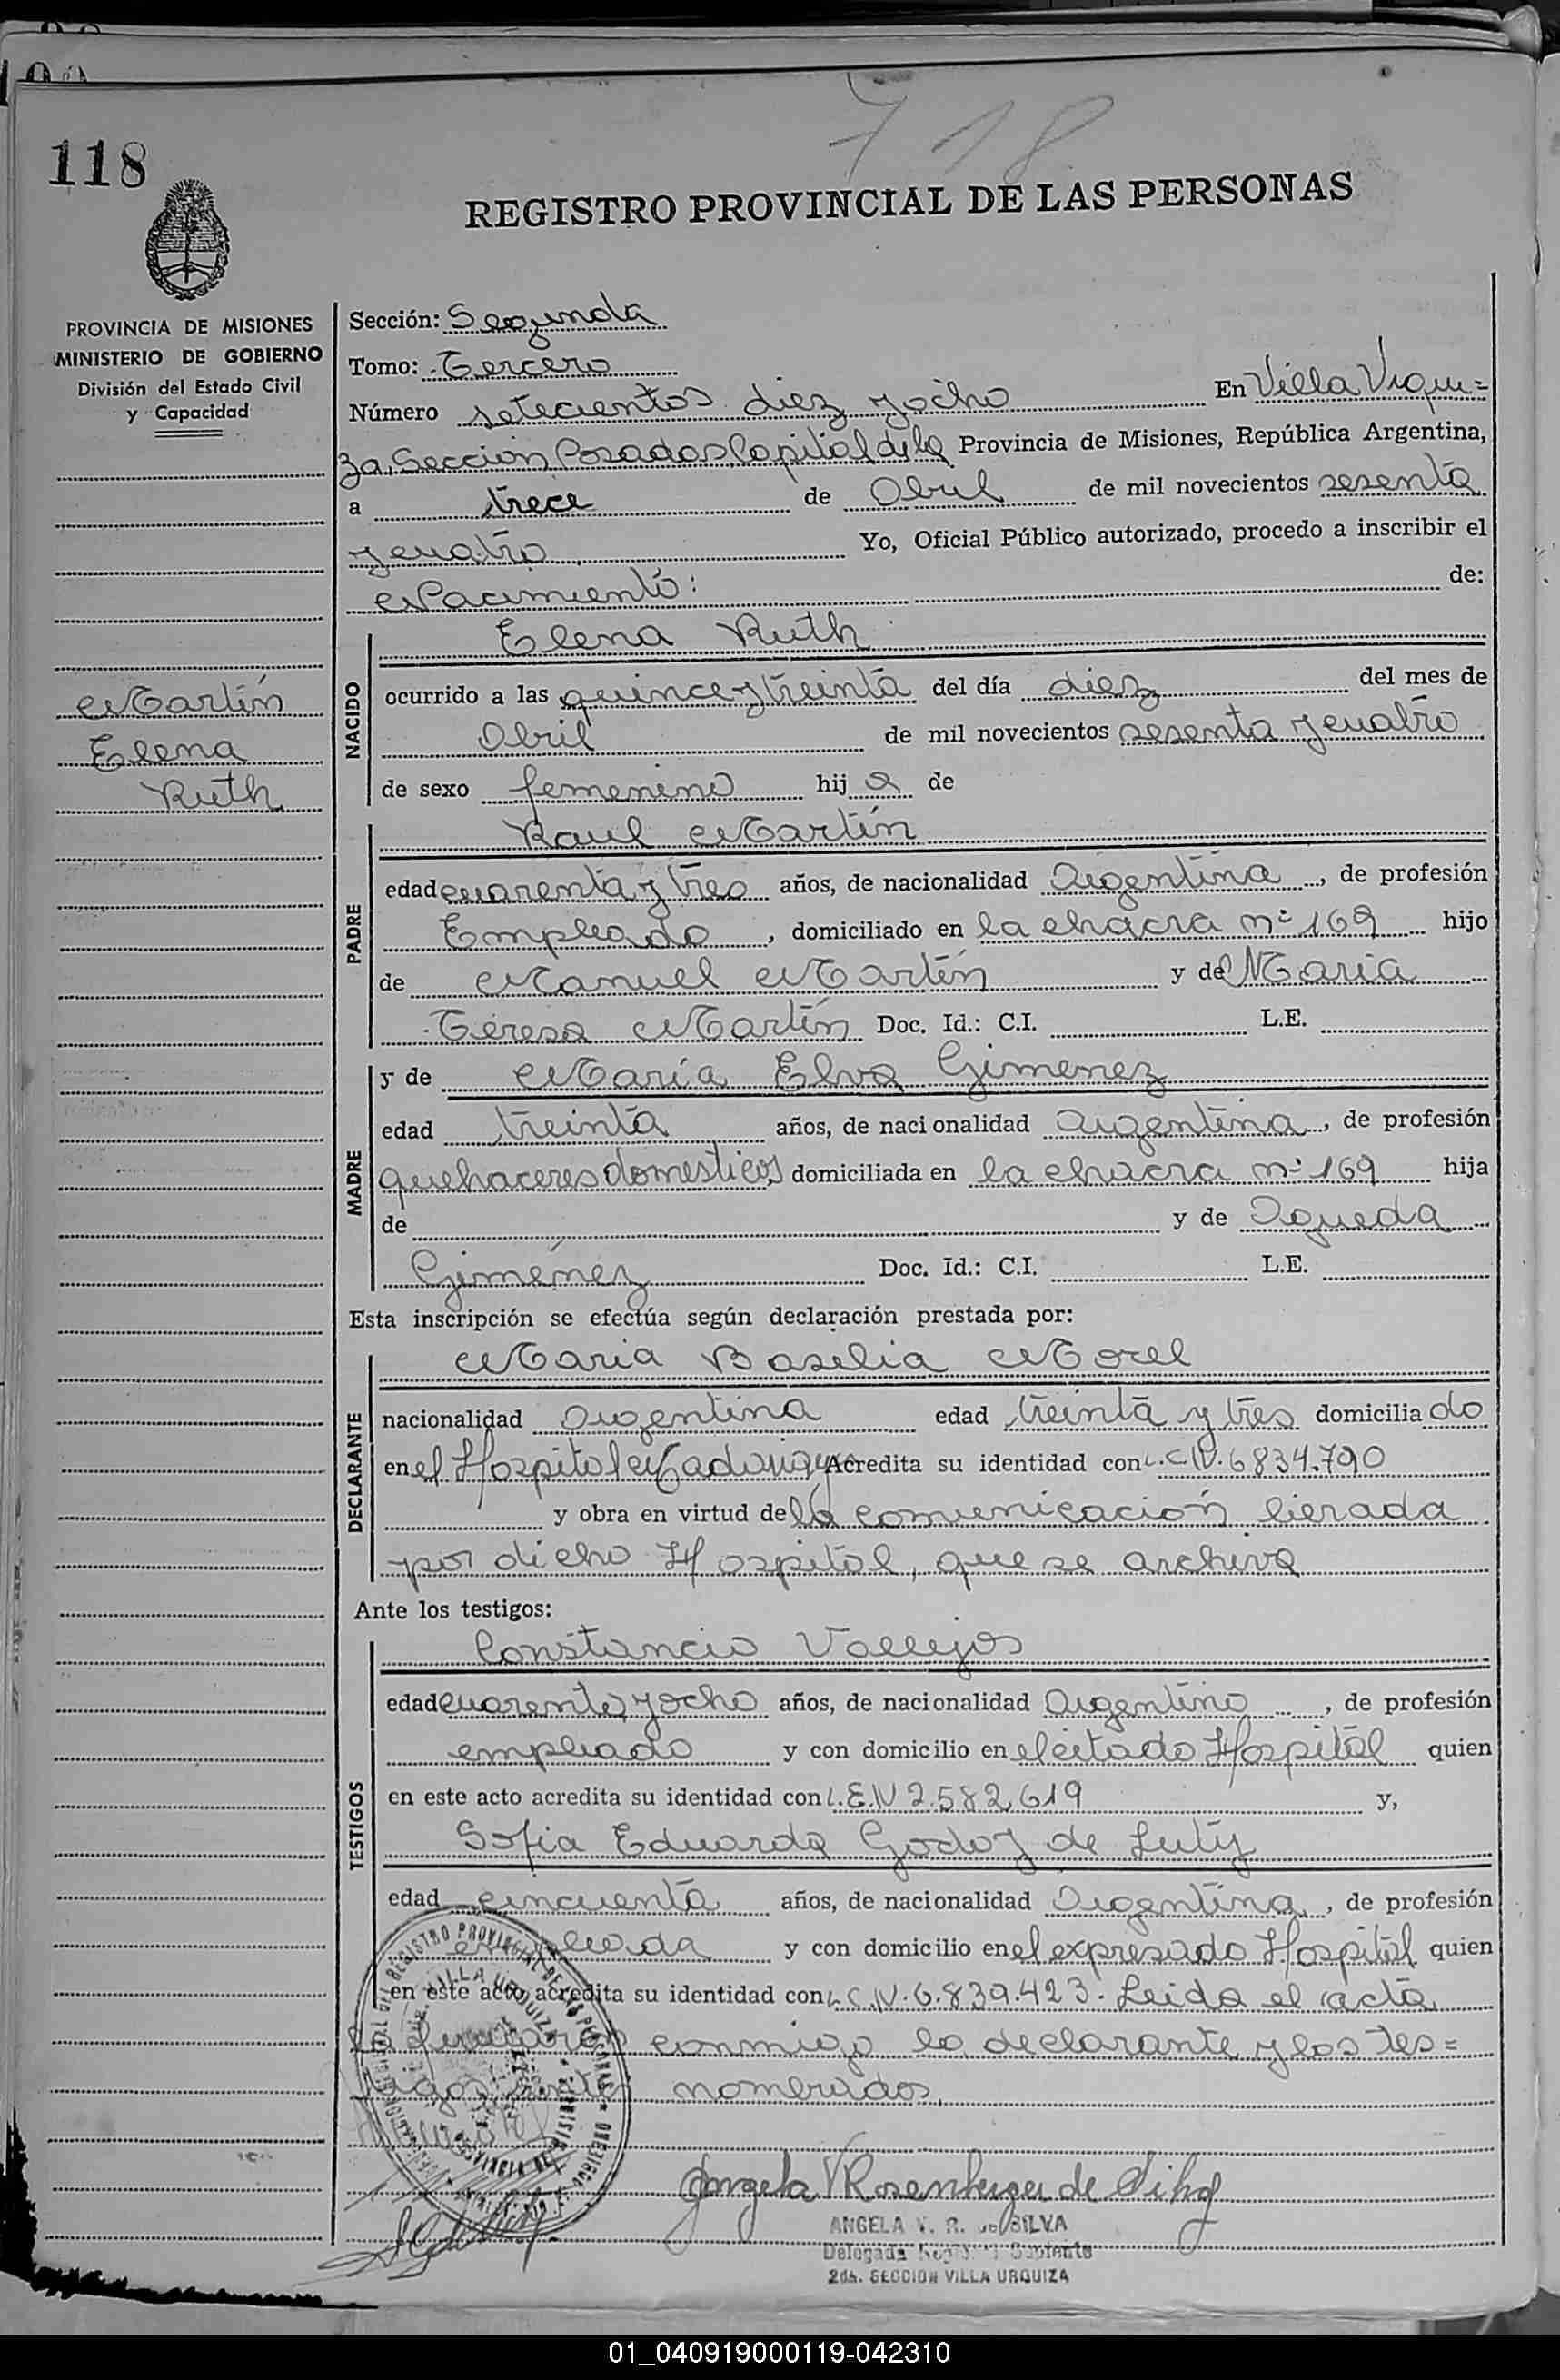 718
118
REGISTRO PROVINCIAL DE LAS PERSONAS
PROVINCIA DE MISIONES
MINISTERIO DE GOBIERNO
División del Estado Civil
y Capacidad
Martín
Elena
Ruth
Sección: Segunda
Tomo: Tercero
Número setecientos diez y ocho En Villa Urqui=
za, Sección Posadas, Capital de la Provincia de Misiones, República Argentina,
a trece de Abril de mil novecientos sesenta
y cuatro Yo, Oficial Público autorizado, procedo a inscribir el
Nacimiento: de:
NACIDO
Elena Ruth
ocurrido a las quince y treinta del día diez del mes de
Abril de mil novecientos sesenta y cuatro
de sexo femenino hij a de
PADRE
Raul Martín
edad cuarenta y tres años, de nacionalidad Argentina, de profesión
Empleado, domiciliado en la chacra nº 169 hijo
de Manuel Martín y de Maria
Teresa Martín Doc. Id.: C.I. L.E.
MADRE
y de María Elva Gimenez
edad treinta años, de nacionalidad Argentina, de profesión
quehaceres domesticos, domiciliada en la chacra nº 169 hija
de y de Agueda
Giménez Doc. Id.: C.I. L.E.
Esta inscripción se efectúa según declaración prestada por:
DECLARANTE
Maria Basilia Morel
nacionalidad Argentina edad treinta y tres domicilia do
en el Hospital Madariaga Acredita su identidad con L.C.N. 6834.790
y obra en virtud de la comunicación lierada
por dicho Hospital, que se archiva
Ante los testigos:
TESTIGOS
Constancio Vallejos
edad cuarenta y ocho años, de nacionalidad Argentino, de profesión
empleado y con domicilio en el citado Hospital quien
en este acto acredita su identidad con L.E.N 2.582.619 y,
Sofia Eduarda Godoy de Luty
edad cincuenta años, de nacionalidad Argentina, de profesión
empleada y con domicilio en el expresado Hospital quien
en este acto acredita su identidad con L.C.N. 6.839.423. Leida el acta
la firmaron conmigo la declarante y los tes=
tigos antes nombrados.
Angela V Rosenberger de Silva
ANGELA V. R. de SILVA
Delegada Suplente
2da. SECCION VILLA URQUIZA
01_040919000119-042310